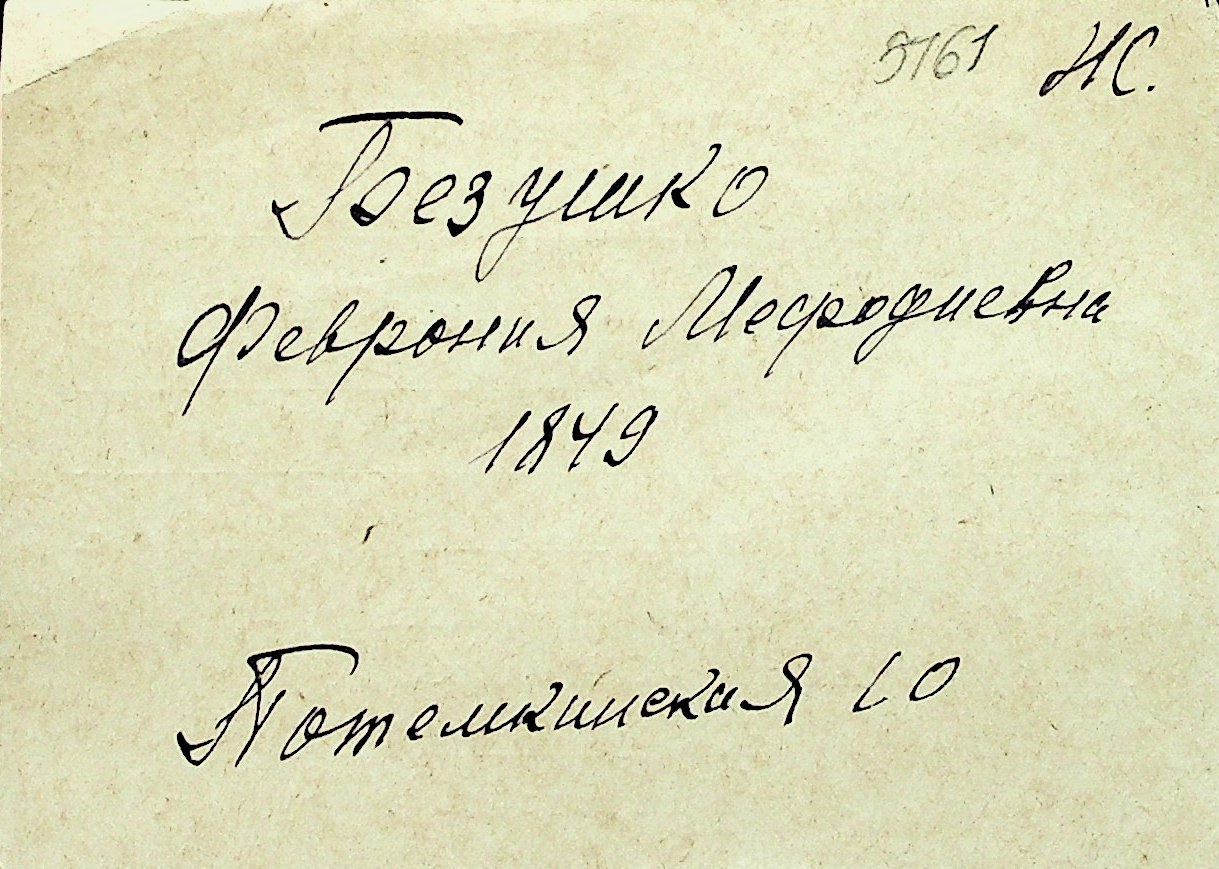 9761 НС.
Безушко
Феврония Мефодиевна
1849
Потемкинская 10